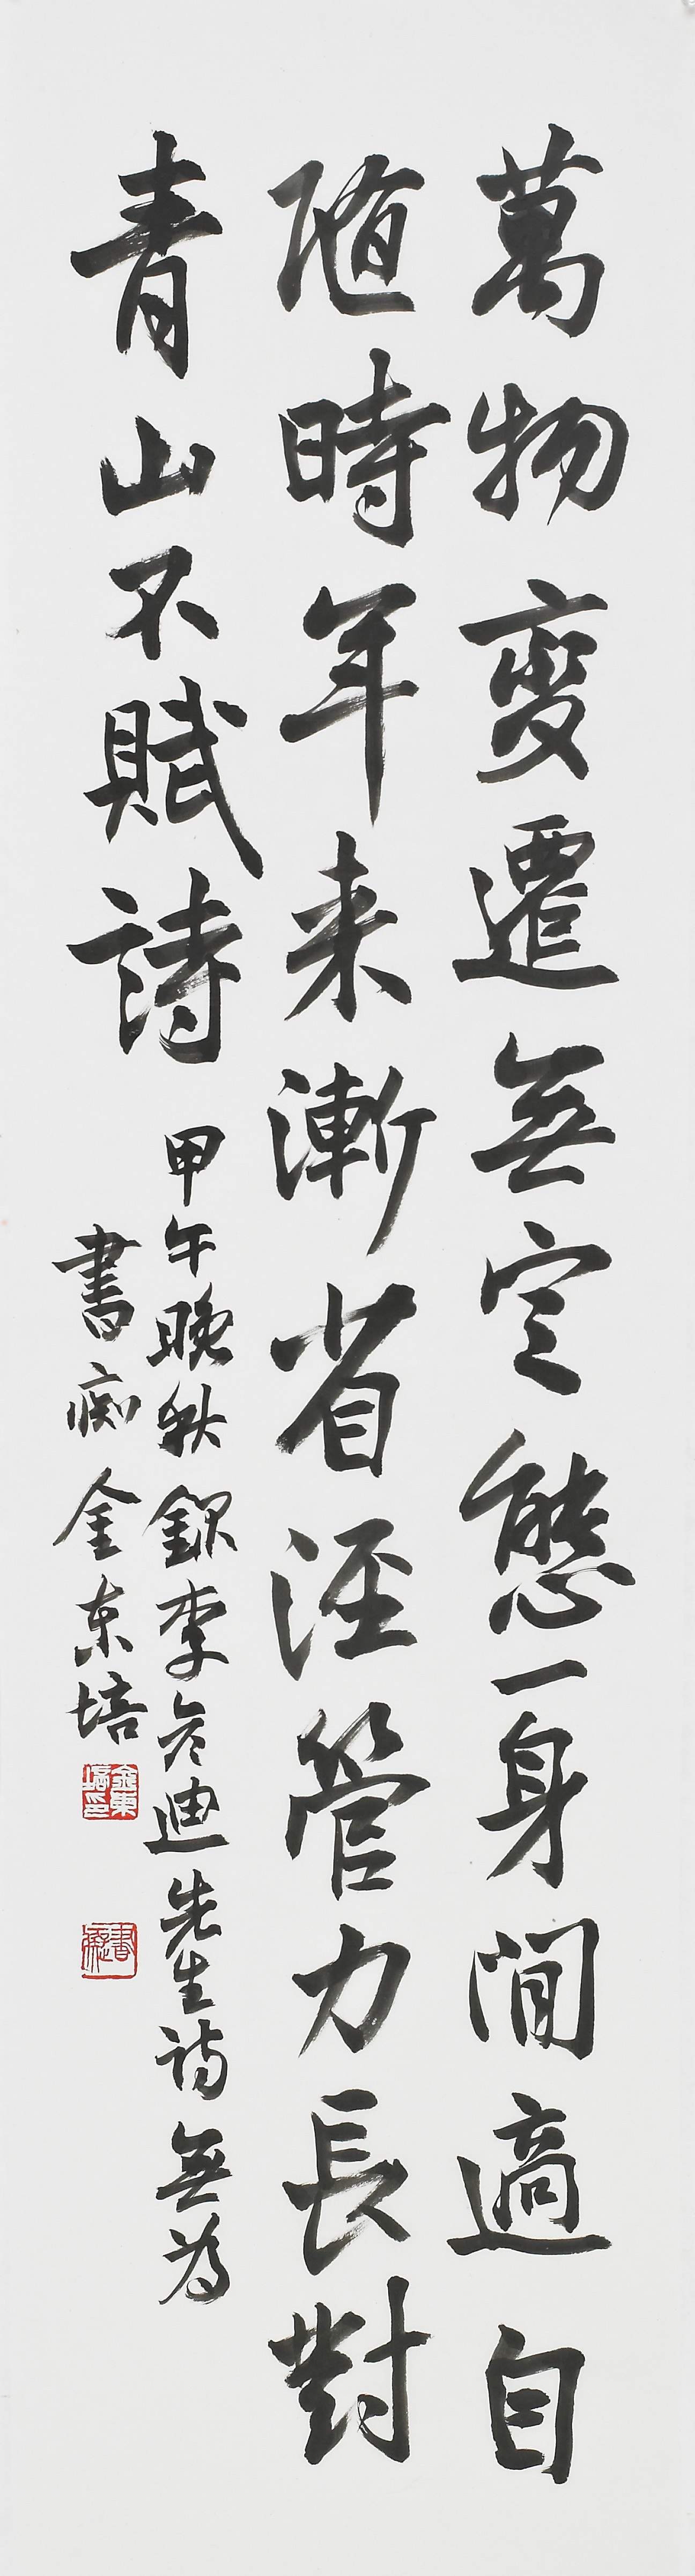 萬物變遷無定態一身間適自
隨時年来漸省涇管力長對
青山不賦詩
甲午晚秋錄李彦迪先生詩無為
書痴金东培
金東培印
書癡